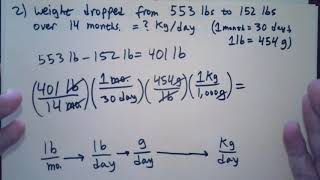 2) Weight dropped from 553 lbs to 152 lbs
over 14 months. = ? Kg/day (1 month = 30 days
1 lb = 454 g)
553 lb - 152 lb = 401 lb
(401 lb / 14 mo.) (1 mo. / 30 day) (454 g / lb) (1 Kg / 1,000 g) =
lb/mo. → lb/day → g/day → Kg/day